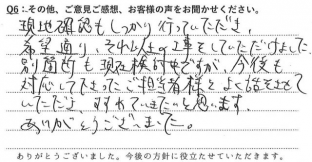 Q6：その他、ご意見ご感想、お客様の声をお聞かせください。
現地確認もしっかり行っていただき、
希望通り、それ以上の工事をしていただけました。
別箇所も現在検討中ですが、今後も
対応して下さったご担当者様とよく話をさせて
いただき、すすめていきたいと思います。
ありがとうございました。
ありがとうございました。今後の方針に役立たせていただきます。